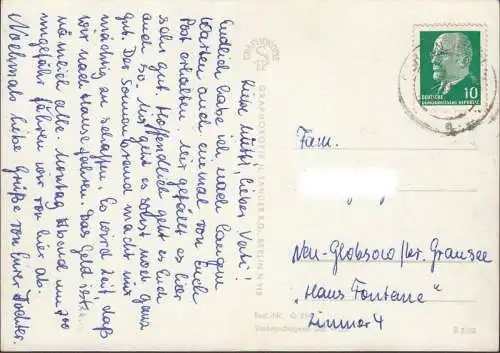 Liebe Mutti, lieber Vati!
Endlich habe ich, nach langem
Warten auch einmal von Euch
Post erhalten. Mir gefällt es hier
sehr gut. Hoffentlich geht es Euch
auch so. Uns geht es sonst noch ganz
gut. Der Sonnenbrand macht mir
mächtig zu schaffen. Es wird Zeit, daß
wir nach Hause fahren. Das Geld ist
nämlich alle. Montag Abend um 7⁰⁰
ungefähr fahren wir von hier ab.
Nochmals liebe Grüße von Eurer Tochter.
GRAPHOKOPIE H. SANDER K.G., BERLIN N 113
Best.-Nr. G
Verkaufspreis
DEUTSCHE
DEMOKRATISCHE REPUBLIK
10
Fam.
Neu-Globsow/Kr. Gransee
"Haus Fontane"
Zimmer 4